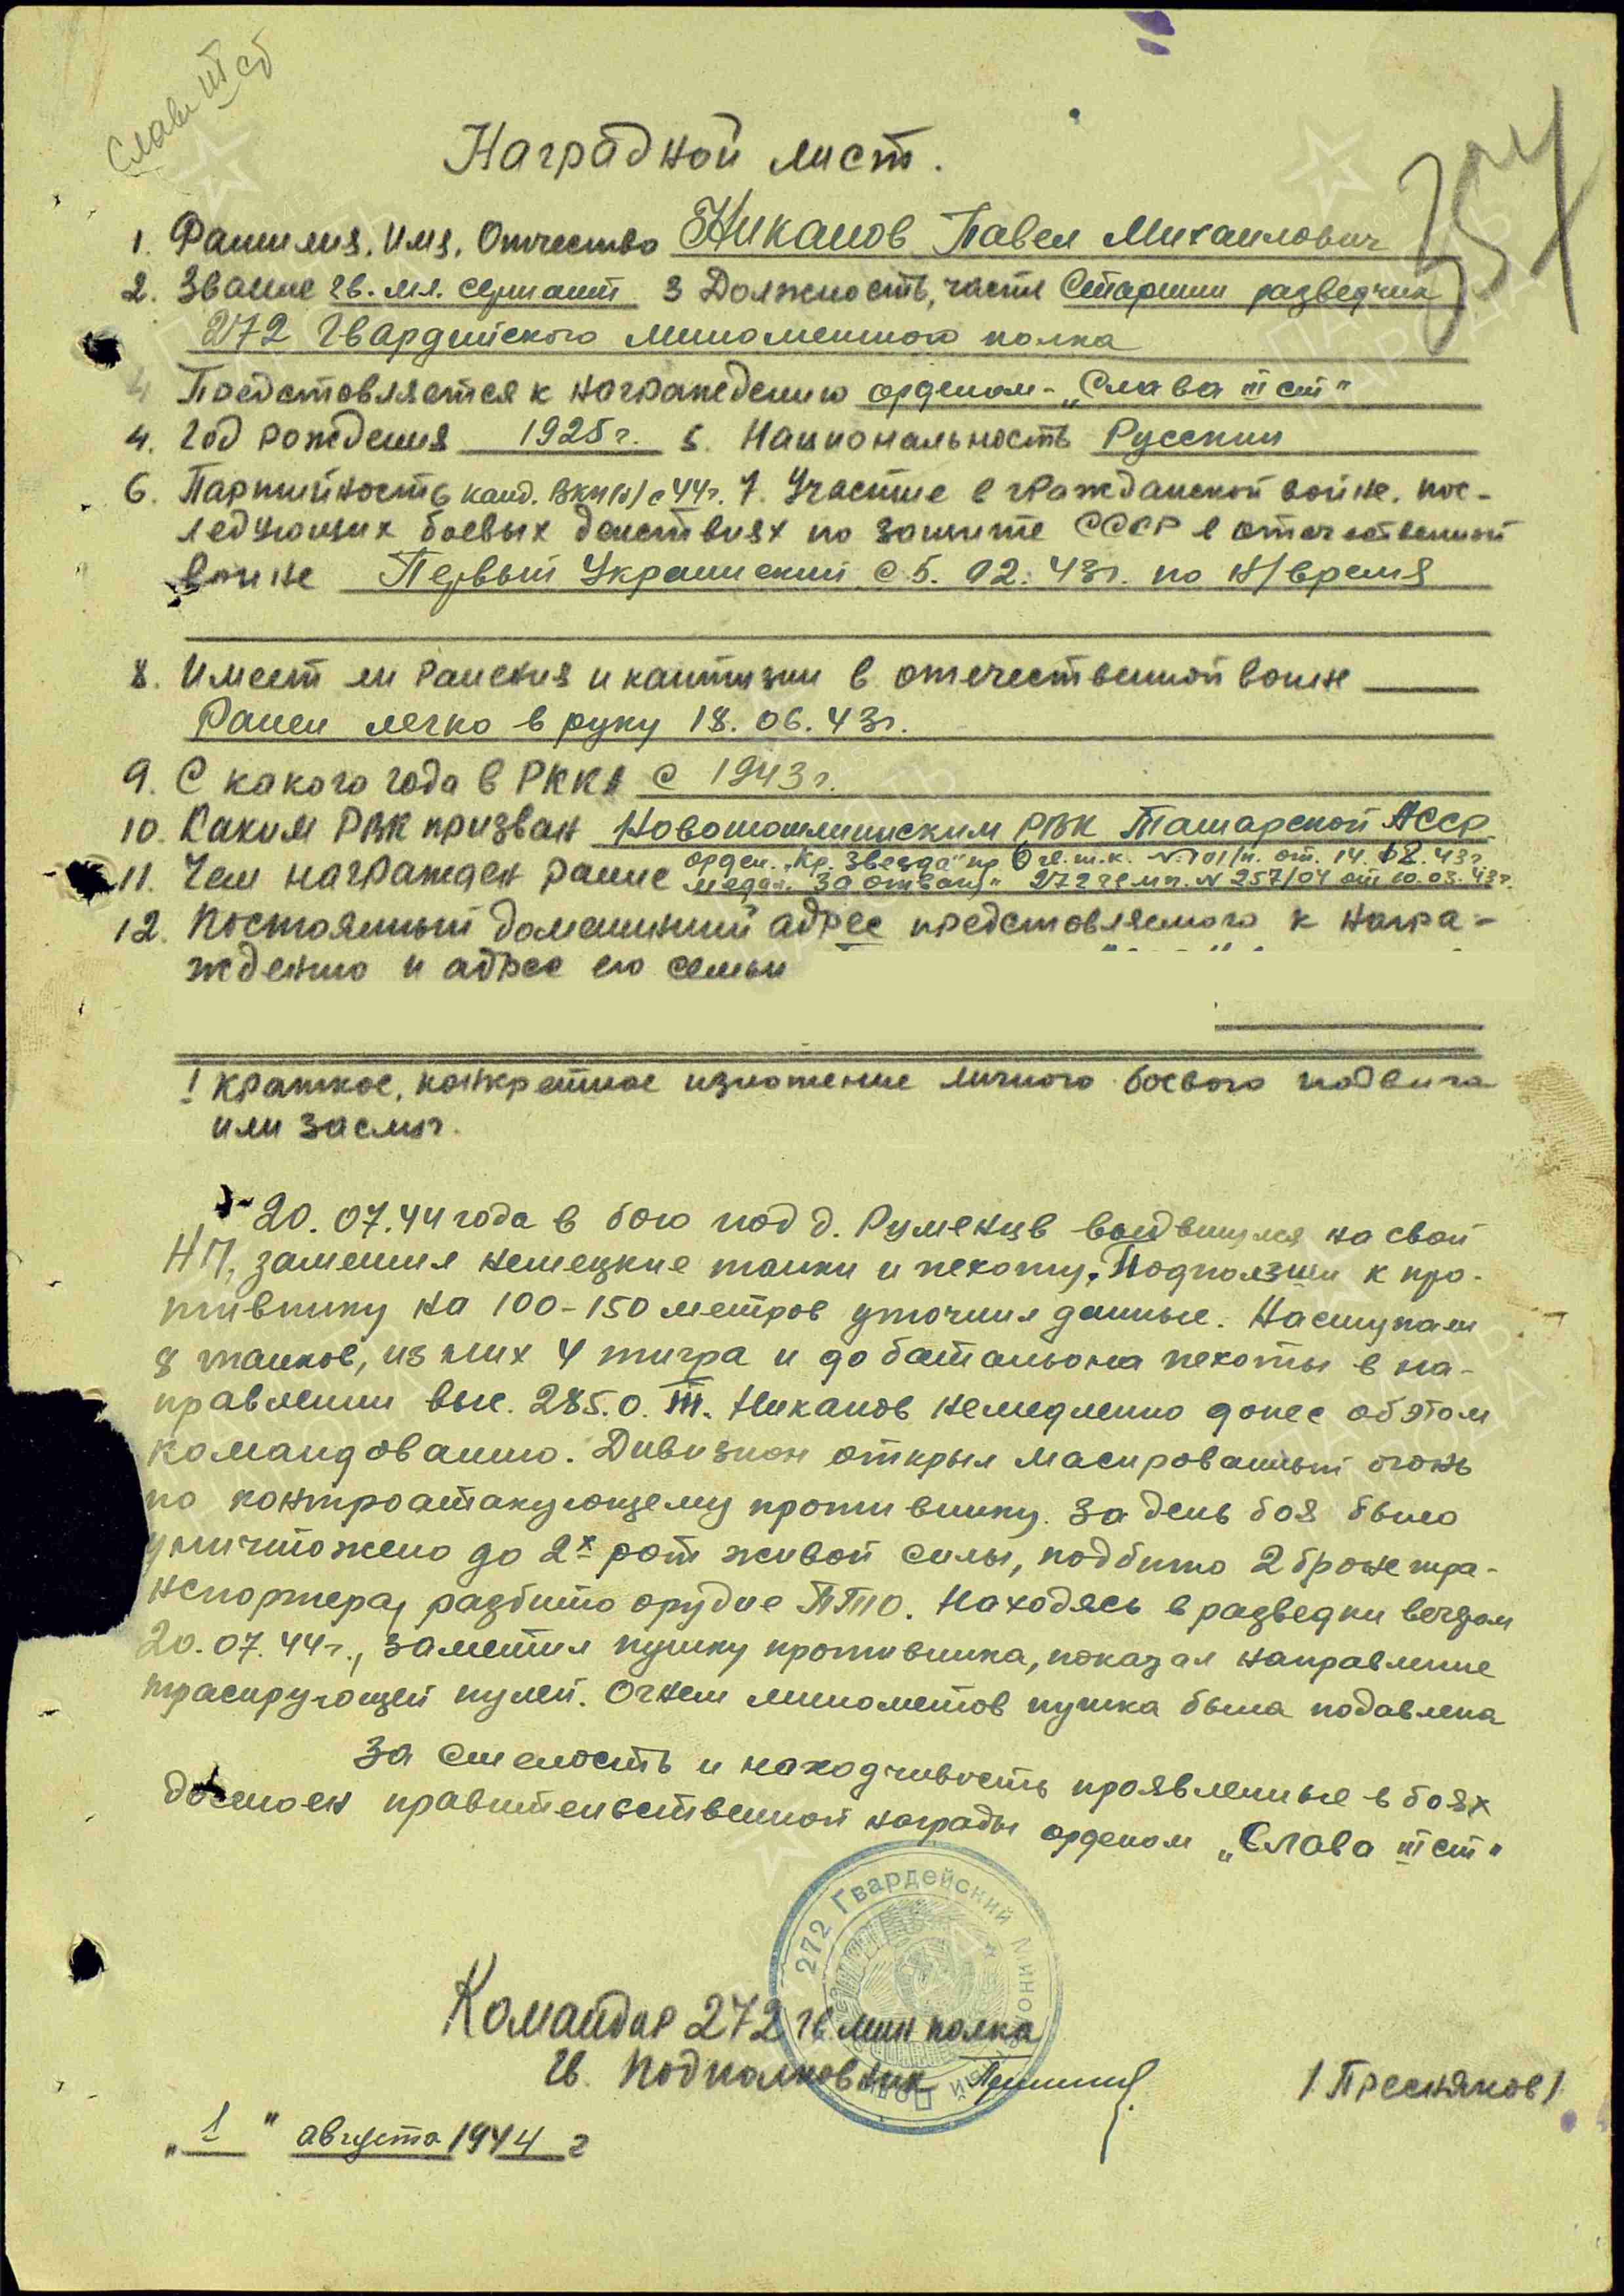 Слава III ст
354
Наградной лист.
1. Фамилия, Имя, Отчество Никанов Павел Михаилович
2. Звание гв. мл. сержант 3 Должность, часть Старшии разведчик
272 Гвардииского миноменного полка
4 Представляется к награждению орденом - „Слава III ст"
4. Год рождения 1925 г. 5. Национальность Русскии
6. Партийность канд. ВКП(б) с 44 г. 7. Участие в гражданской воине, пос-
ледующих боевых деиствиях по защите СССР в отечественной
воине Первыи Украинскии с 5. 02. 43 г. по н/время
8. Имеет ли ранения и кантузии в отечественной воине
Ранен легко в руку 18. 06. 43 г.
9. С какого года в РККА с 1943 г.
10. Каким РВК призван РВК Татарской АССР
11. Чем награжден ранее орден. „Кр. Звезда" пр 6 гв. т. к. № 101/н. от. 14. 12. 43 г.
медаль „За отвагу" 272 гв мп. № 257/04 от 10.03.43 г.
12. Постоянный домашнний адрес представляемого к награ-
ждению и адрес его семьи
! Краткое, конкретное изложение личного боевого подвига
или заслуг.
20. 07. 44 года в бою под д. Руменцв выдвинулся на свой
НП, заметил немецкие танки и пехоту. Подползши к про-
тивнику на 100-150 метров уточнил данные. Наступали
8 танков, из них 4 тигра и до батальона пехоты в на-
правлении выс. 285.0. т. Никанов немедленно донес об этом
командованию. Дивизион открыл масированный огонь
по контроатакующему противнику. За день боя было
уничтожено до 2х рот живой силы, подбито 2 бронетра-
нспортера, разбито орудие ПТО. Находясь в разведки вечером
20. 07. 44 г., заметил пушку противника, показал направление
трасирующей пулей. Огнем минометов пушка была подавлена
За смелость и находчивость проявленные в боях
достоен правительственной награды орденом „Слава III ст"
272 Гвардейский Минометный Полк
Командир 272 гв мин полка
Гв. Подполковник /Пресняков/
„1" августа 1944 г